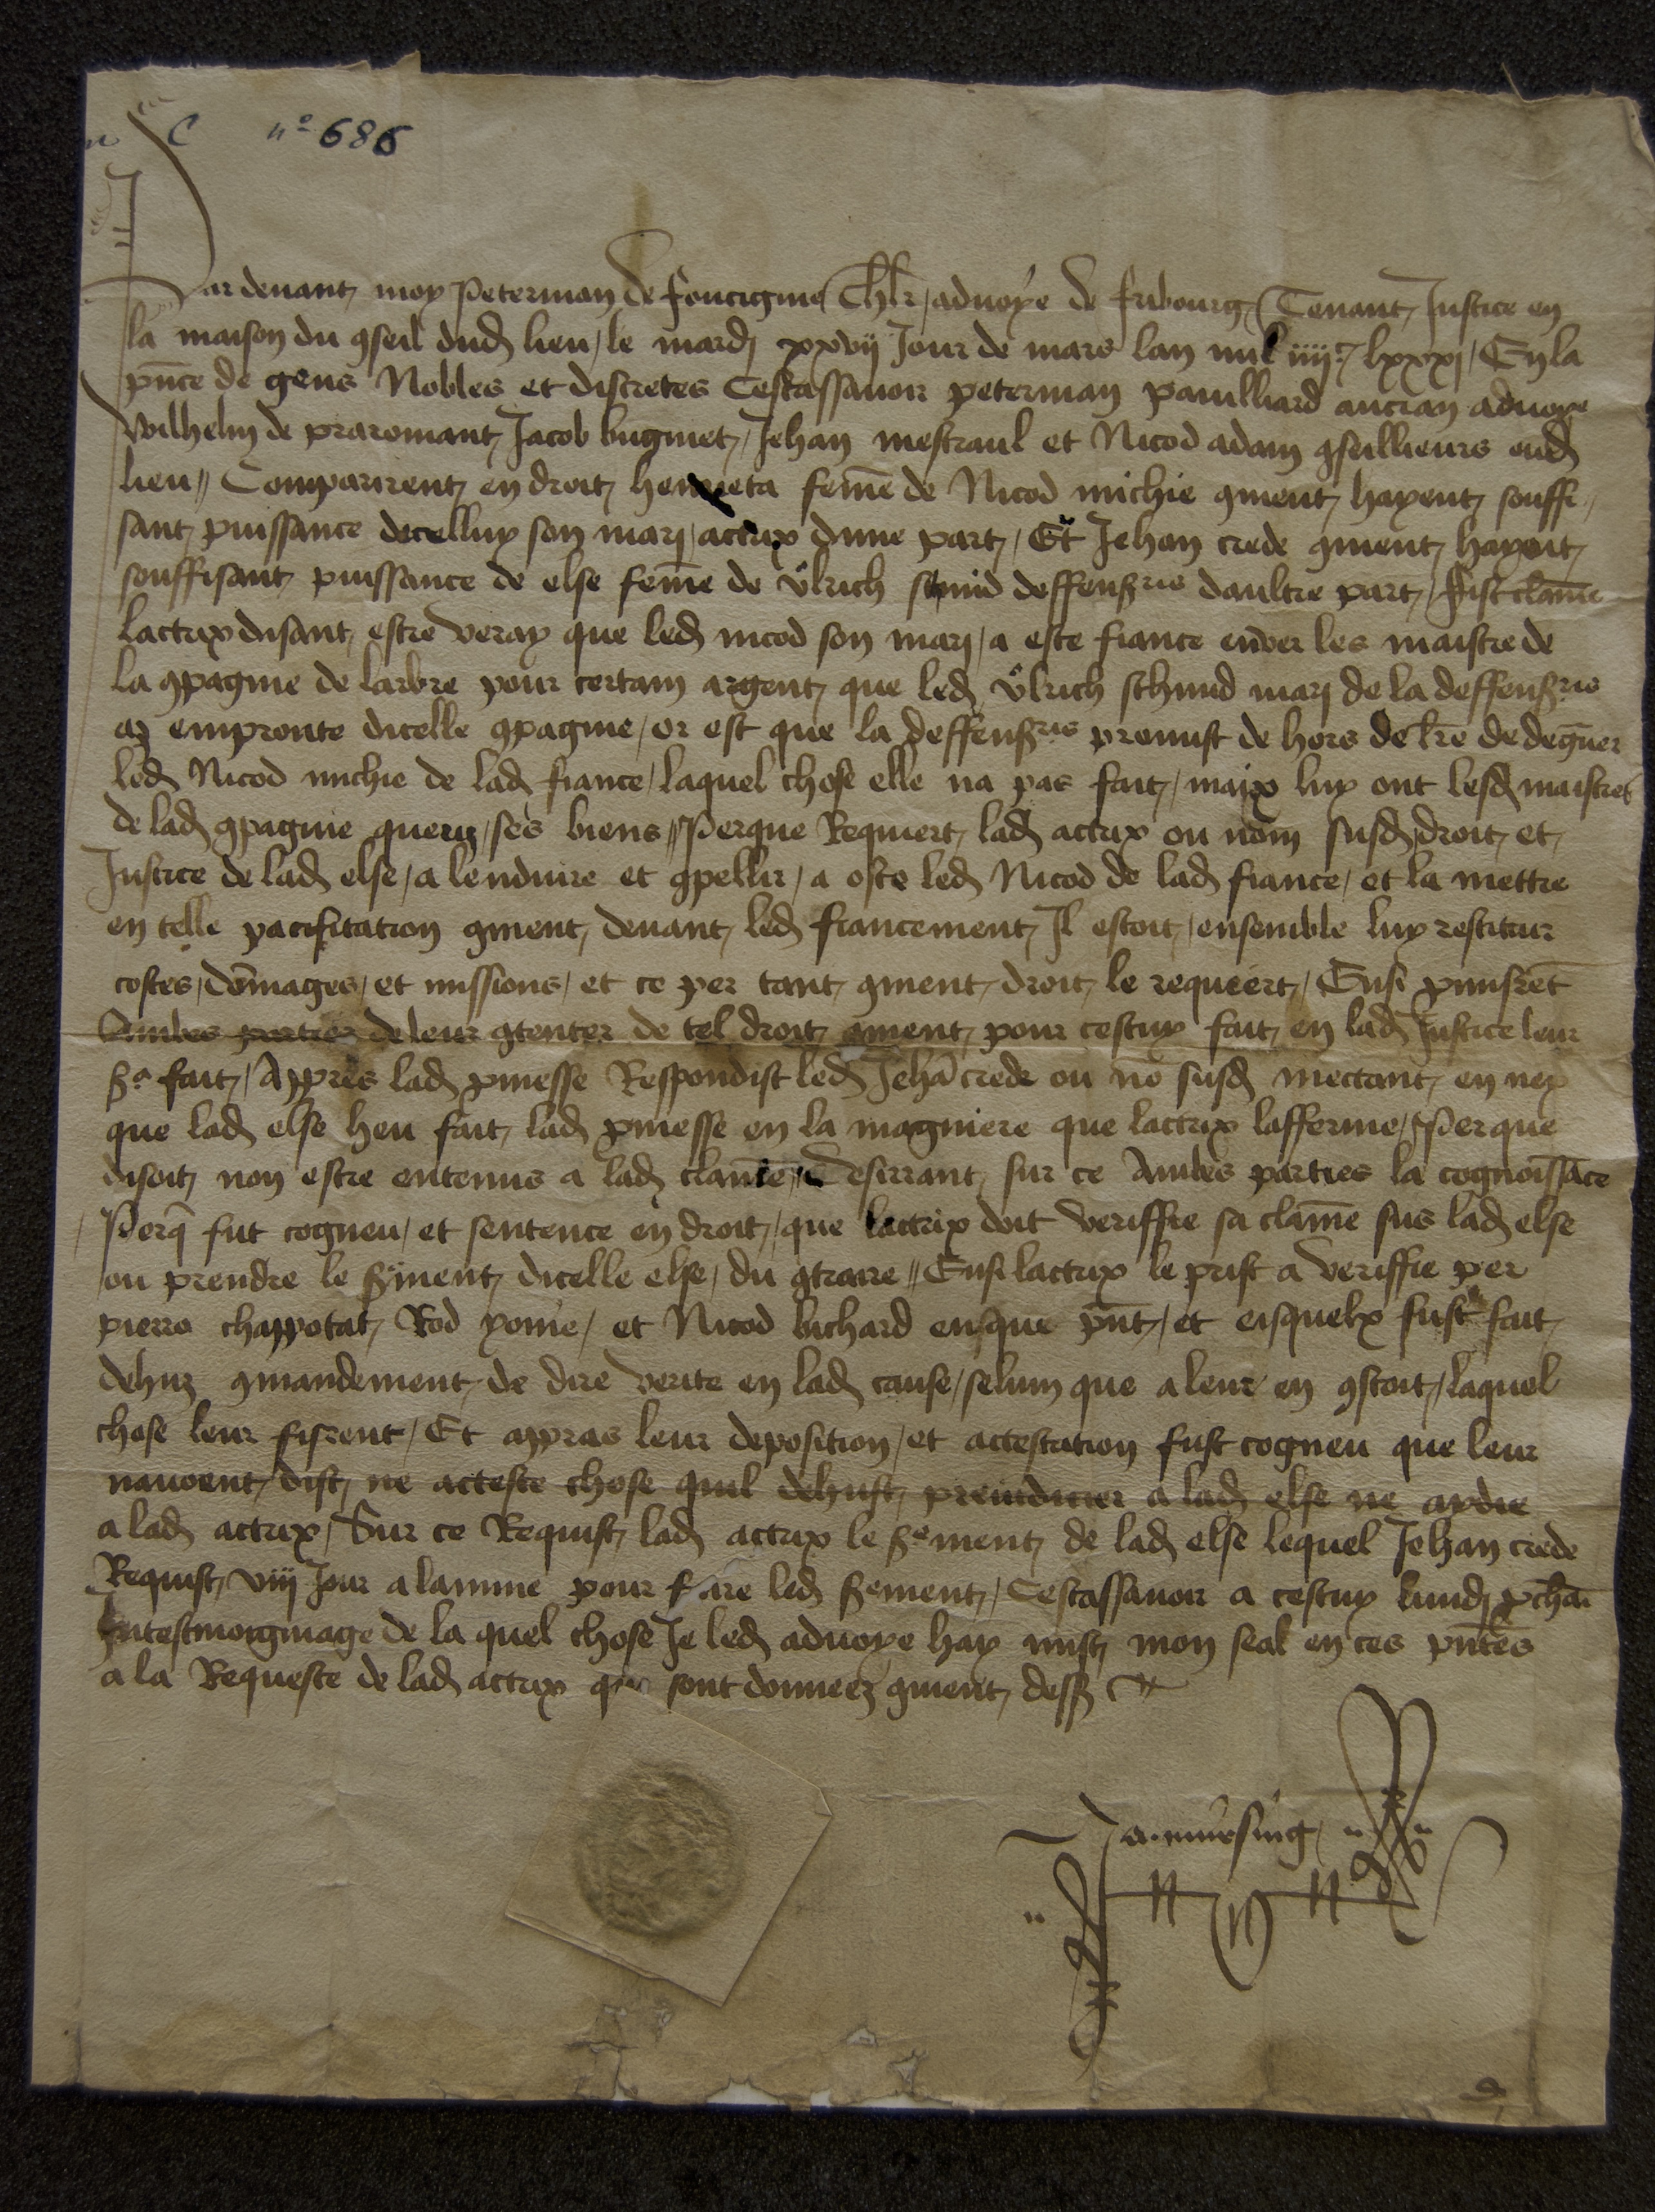 C nº 686
Par devant moy Peterman de Foucignie Chlr / advoye de Fribourg / Tenant Justice en
la maison du 9seil dud lieu / le mardj xxvij Jour de mars lan mil iiijc lxxxj / En la
pnce de gens Nobles et discretes Cestassavoir peterman pavilliard ancian advoye
Wilhelm de praromant Jacob bugniet / Jehan mestraul et Nicod adam 9seillieurs oud
lieu // Comparirent en droit henneta feme de Nicod michie 9ment hayent souffi
sant puissance dicelluy son marj / actrix dune part / Et Jehan crede 9ment hayent
souffisant puissance de else feme de Ulrich schmid deffensris daultre part / fist clame
lactrix disant estre veray que led nicod son marj / a este fiance enver les maistre de
la 9pagnie de larbre pour certain argent que led Ulrich schmid marj de la deffensris
az empronte dicelle 9pagnie / or est que la deffensris promist de hors de lre de degaier
led Nicod michie de lad fiance / laquel chose elle na pas fait / maix luy ont lesd maistres
de lad 9pagnie queru / ses biens // Perque Requiert lad actrix ou nom susd droit et
Justice de lad else / a lenduire et 9pellir / a oste led Nicod de lad fiance / et la mettre
en telle pacifitation 9ment devant led fiancement Il estoit / ensemble luy restituir
costes / domages / et missions / et ce per tant 9ment droit le requiert / Ensi pmisret
Ambes parties de leur 9tenter de tel droit 9ment pour cestuy fait en lad Justice leur
sa fait / Appres lad pmesse Respondist led Jeha crede ou no susd mectant en ney
que lad else heu fait lad pmesse en la magniere que lactrix lafferme / Perque
disoit non estre entenus a lad clame // Desirrant sur ce Ambes parties la cognoissace
Perq fut cogneu / et sentence en droit // que lactrix doit veriffie sa clame sus lad else
ou prendre le sement dicelle else / du 9traire // Ensi lactrix le prist a veriffie per
pierro chappotat Rod yonie / et Nicod bichard enque pnt / et eisquelx fust fait
dehuz 9mandement de dire verite en lad cause / selum que a leur en 9stoit / laquel
chose leur fisrent / Et appras leur deposition / et actestation fust cogneu que leur
navoent dist ne acteste chose quil dehust preiudicier a lad else ne aydie
a lad actrix / Sur ce Requist lad actrix le sement de lad else lequel Jehan crede
Requist viij Jour a lamme pour faire led sement / Cestassavoir a cestuy lundj pchai
In testmoignage de la quel chose Je led advoye hay mist mon seal en ces pntes
a la Requeste de lad actrix que sont donneez 9ment dess